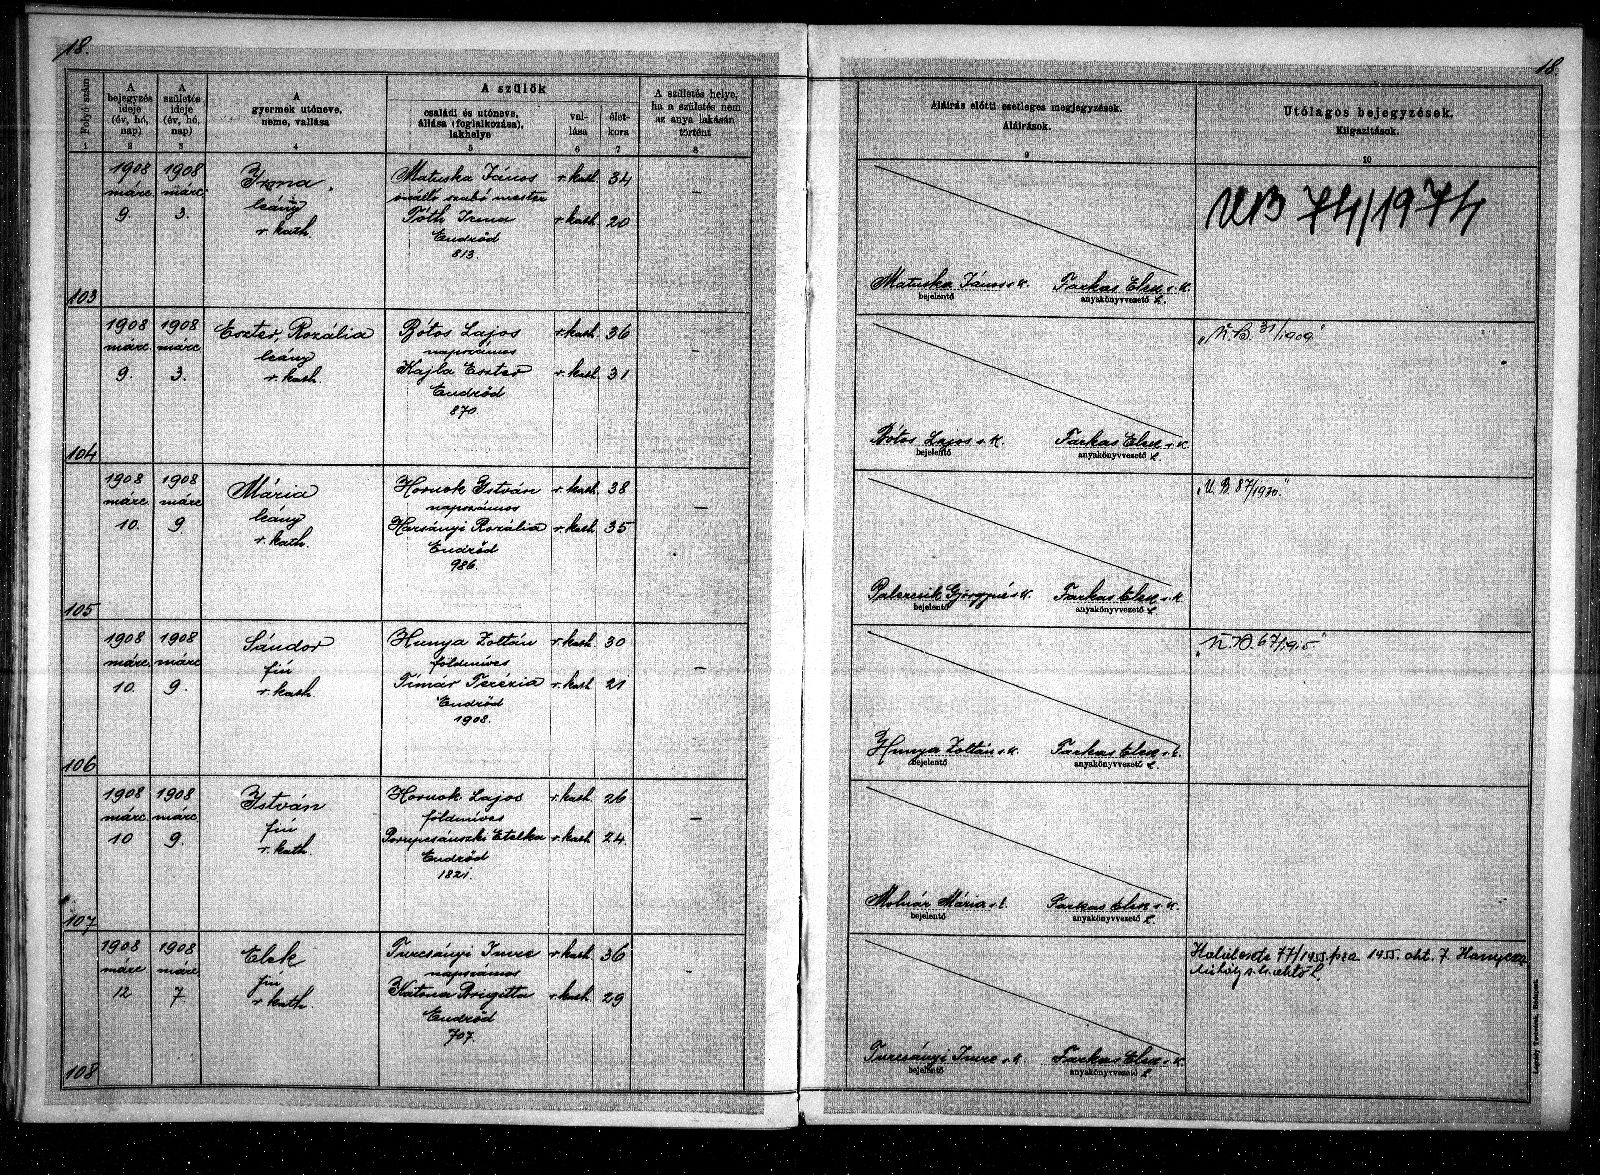 18.
18.
Folyó szám
A bejegyzés ideje (év, hó, nap)
A születés ideje (év, hó, nap)
A gyermek utóneve, neme, vallása
A szülők
családi és utóneve, állása (foglalkozása), lakhelye
vallása
életkora
A születés helye, ha a születés nem az anya lakásán történt
Aláírás előtti esetleges megjegyzések.
Aláírások.
Utólagos bejegyzések.
Kiigazítások.
1 2 3 4 5 6 7 8 9 10
1908 1908 Irma Matuska János r. kath. 34
márc. márc. leány önálló szabó mester
9. 3. r. kath. Tóth Irma r. kath. 20 –
Endrőd
813.
103
Matuska János s. k. Farkas Elek s. k.
bejelentő anyakönyvvezető h.
UB 74/1974
1908 1908 Eszter, Rozália Bótos Lajos r. kath. 36
márc. márc. leány napszámos
9. 3. r. kath. Kajla Eszter r. kath. 31 –
Endrőd
870
104
Bótos Lajos s. k. Farkas Elek s. k.
bejelentő anyakönyvvezető h.
„U. B. 31/1909"
1908 1908 Mária Hornok István r. kath. 38
márc. márc. leány napszámos
10. 9. r. kath. Harsányi Rozália r. kath. 35 –
Endrőd
986.
105
Györgyné s. k. Farkas Elek s. k.
bejelentő anyakönyvvezető h.
„U. B. 87/1930."
1908 1908 Sándor Hunya Zoltán r. kath. 30
márc. márc. fiú földmíves
10. 9. r. kath. Tímár Terézia r. kath. 21 –
Endrőd
1908.
106
Hunya Zoltán s. k. Farkas Elek s. k.
bejelentő anyakönyvvezető h.
1908 1908 István Hornok Lajos r. kath. 26
márc. márc. fiú földmíves
10 9. r. kath. Etelka r. kath. 24. –
Endrőd
1821.
107
Molnár Mária s. k. Farkas Elek s. k.
bejelentő anyakönyvvezető h.
1908 1908 Elek Turcsányi Imre r. kath. 36
márc. márc. fiú napszámos
12 7 r. kath Katona Brigitta r. kath. 29 –
Endrőd
707.
108
Turcsányi Imre s. k. Farkas Elek s. k.
bejelentő anyakönyvvezető h.
77/1955. 1955. okt. 7.
Mihály